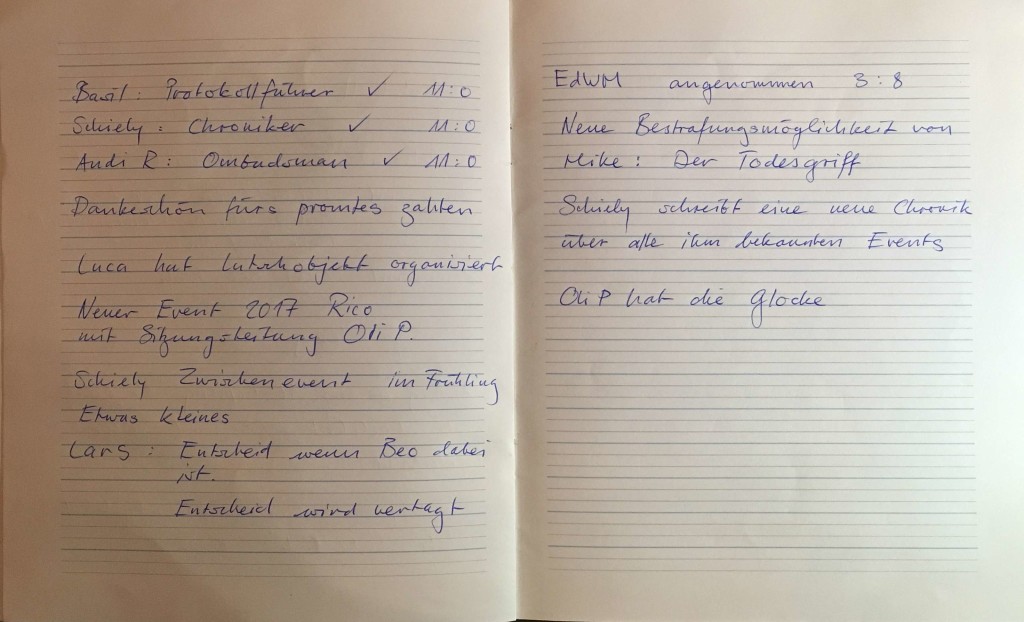 Basil: Protokollführer ✓ 11:0
Schiely: Chroniker ✓ 11:0
Andi R: Ombudsman ✓ 11:0
Dankeschön fürs promtes zahlen
Luca hat Lutschobjekt organisiert
Neuer Event 2017 Rico
mit Sitzungsleitung Oli P.
Schiely Zwischenevent im Frühling
Etwas kleines
Lars: Entscheid wenn Beo dabei
ist.
Entscheid wird vertagt
EdWM angenommen 3:8
Neue Bestrafungsmöglichkeit von
Mike: Der Todesgriff
Schiely schreibt eine neue Chronik
über alle ihm bekannten Events
Oli P hat die Glocke